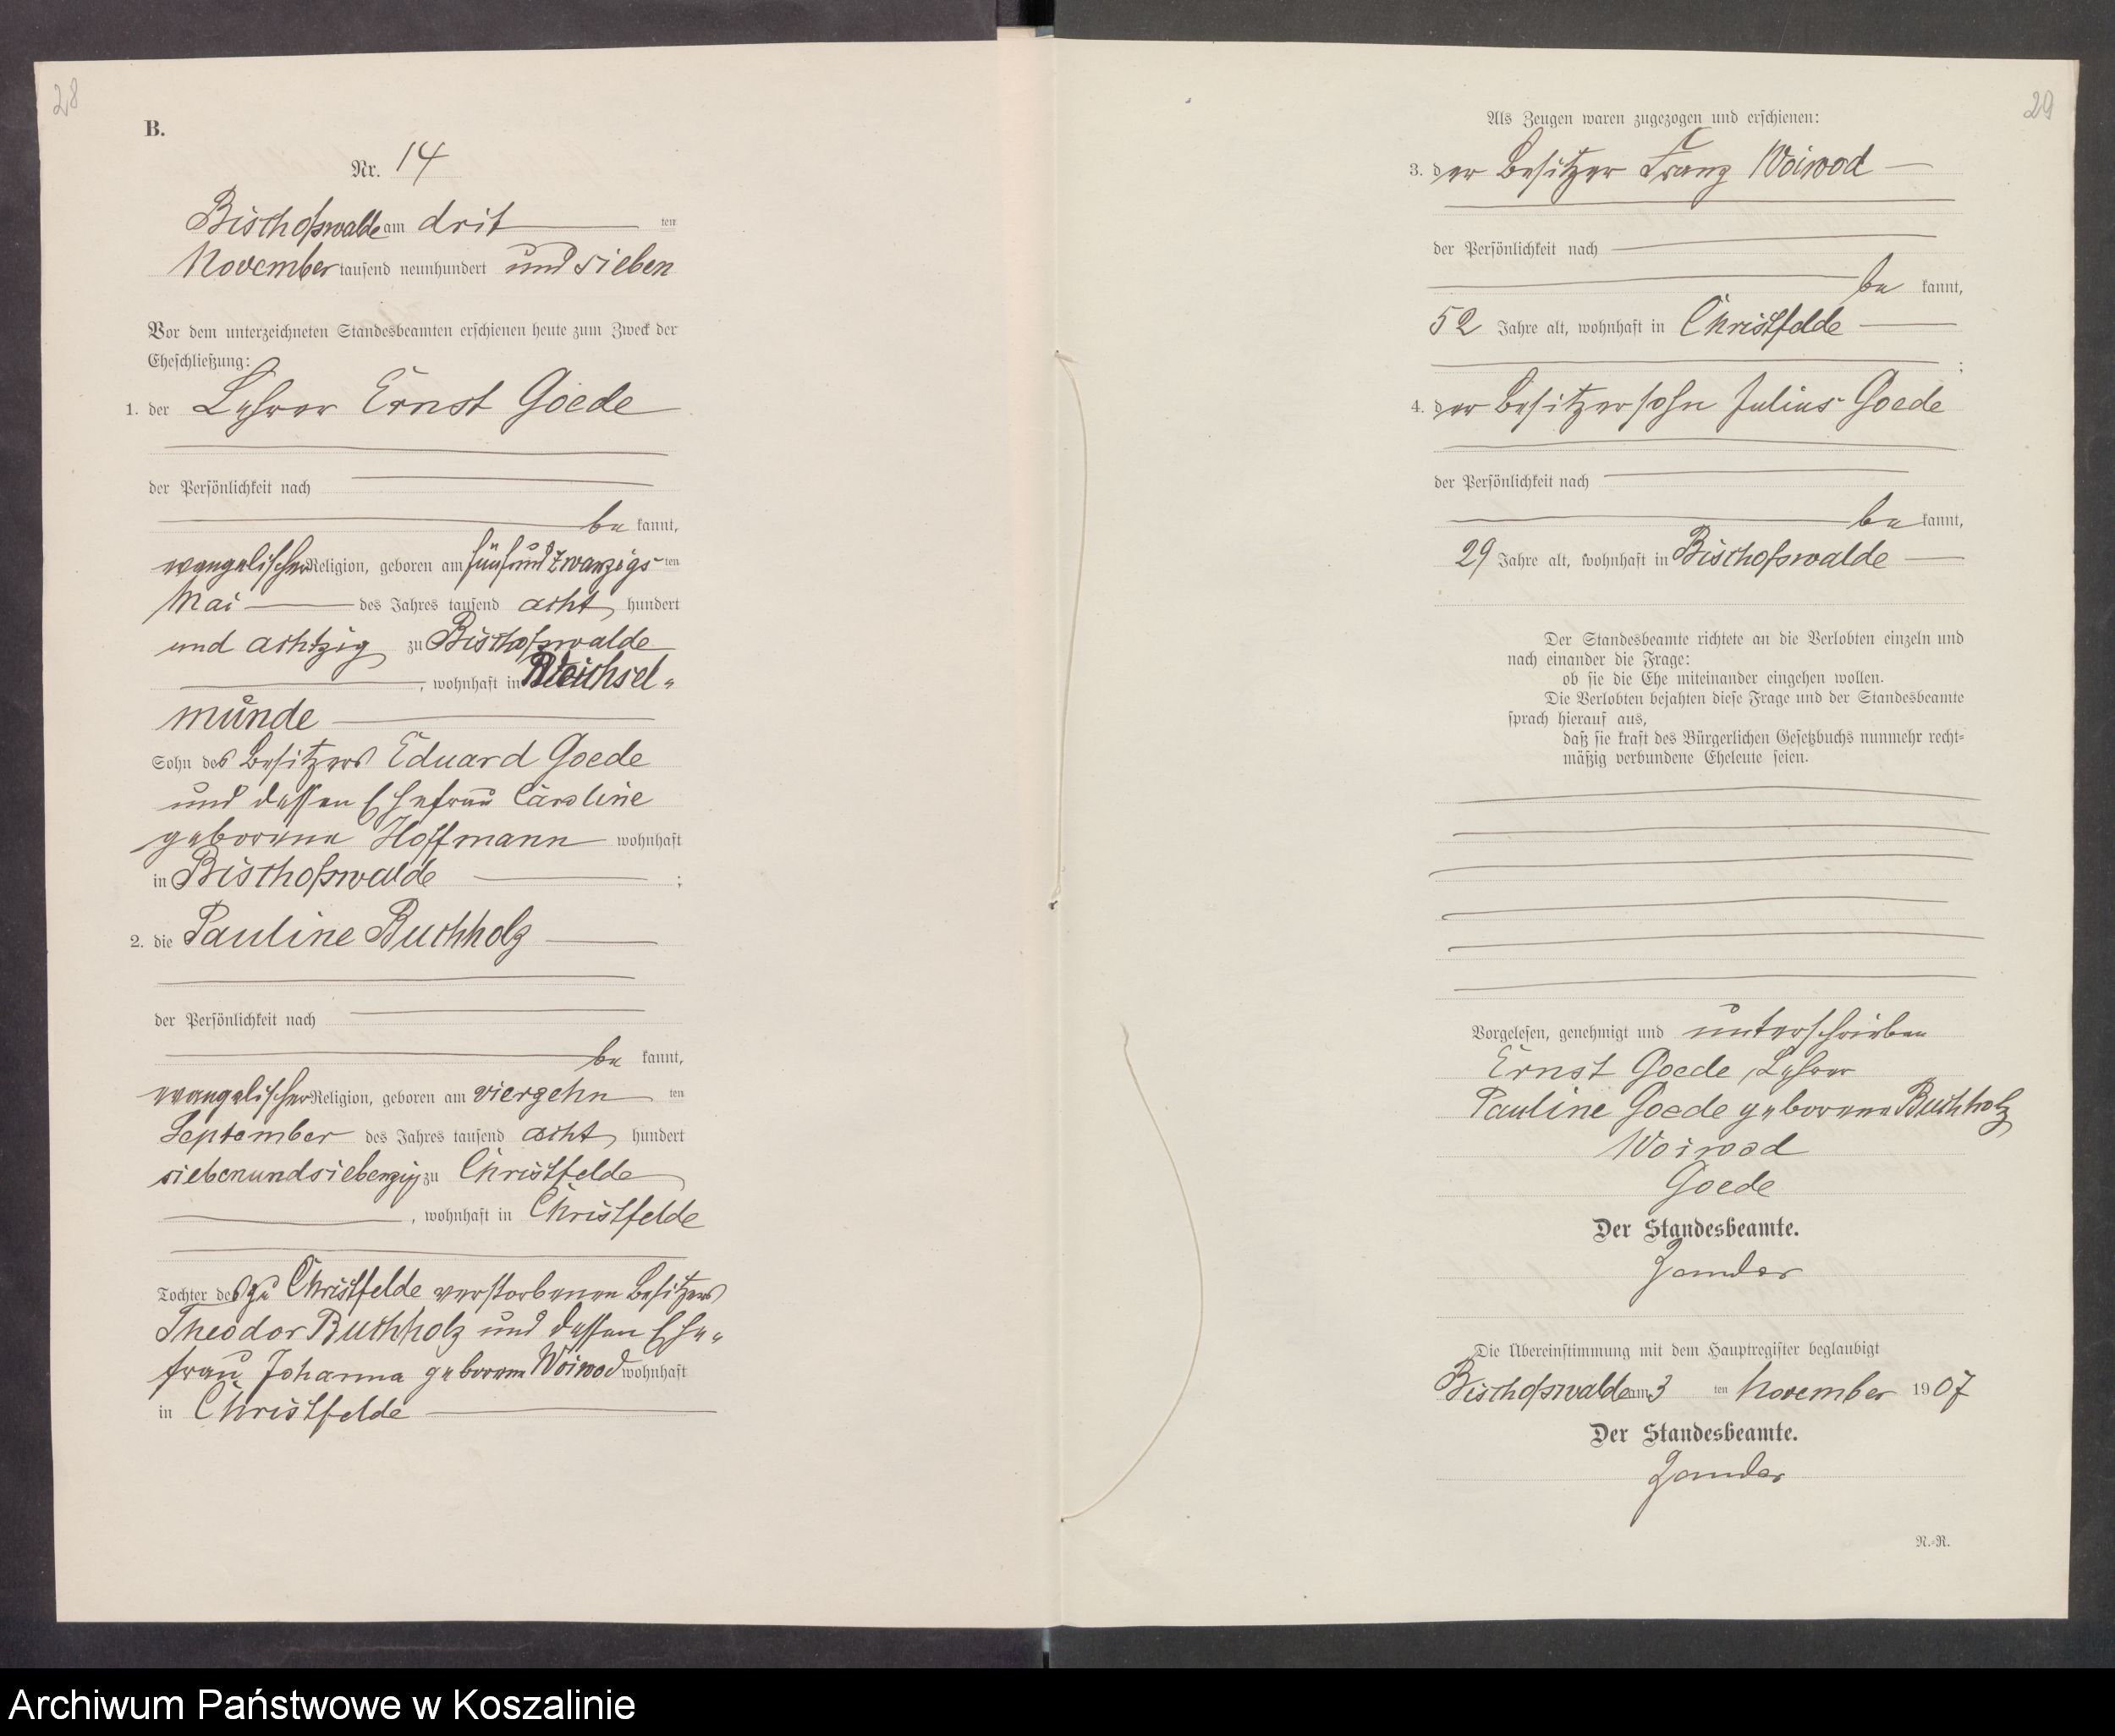 28
B.
Nr. 14
Bischofswalde am dritten
November tausend neunhundert und sieben
Vor dem unterzeichneten Standesbeamten erschienen heute zum Zweck der
Eheschließung:
1. der Lehrer Ernst Goede
der Persönlichkeit nach
bekannt,
evangelischer Religion, geboren am fünfundzwanzigsten
Mai des Jahres tausend achthundert
und achtzig zu Bischofswalde
, wohnhaft in Weichsel-
münde
Sohn des Besitzers Eduard Goede
und dessen Ehefrau Caroline
geborene Hoffmann wohnhaft
in Bischofswalde ;
2. die Pauline Buchholz
der Persönlichkeit nach
bekannt,
evangelischer Religion, geboren am vierzehnten
September des Jahres tausend achthundert
siebenundsiebenzig zu Christfelde
, wohnhaft in Christfelde
Tochter des zu Christfelde verstorbenen Besitzers
Theodor Buchholz und dessen Ehe-
frau Johanna geborene Woiwod wohnhaft
in Christfelde
29
Als Zeugen waren zugezogen und erschienen:
3. der Besitzer Franz Woiwod
der Persönlichkeit nach
bekannt,
52 Jahre alt, wohnhaft in Christfelde
;
4. der Besitzersohn Julius Goede
der Persönlichkeit nach
bekannt,
29 Jahre alt, wohnhaft in Bischofswalde
Der Standesbeamte richtete an die Verlobten einzeln und
nach einander die Frage:
ob sie die Ehe miteinander eingehen wollen.
Die Verlobten bejahten diese Frage und der Standesbeamte
sprach hierauf aus,
daß sie kraft des Bürgerlichen Gesetzbuchs nunmehr recht-
mäßig verbundene Eheleute seien.
Vorgelesen, genehmigt und unterschrieben
Ernst Goede, Lehrer
Pauline Goede geborene Buchholz
Woiwod
Goede
Der Standesbeamte.
Zander
Die Übereinstimmung mit dem Hauptregister beglaubigt
Bischofswalde am 3ten November 1907
Der Standesbeamte.
Zander
N.-R.
Archiwum Państwowe w Koszalinie